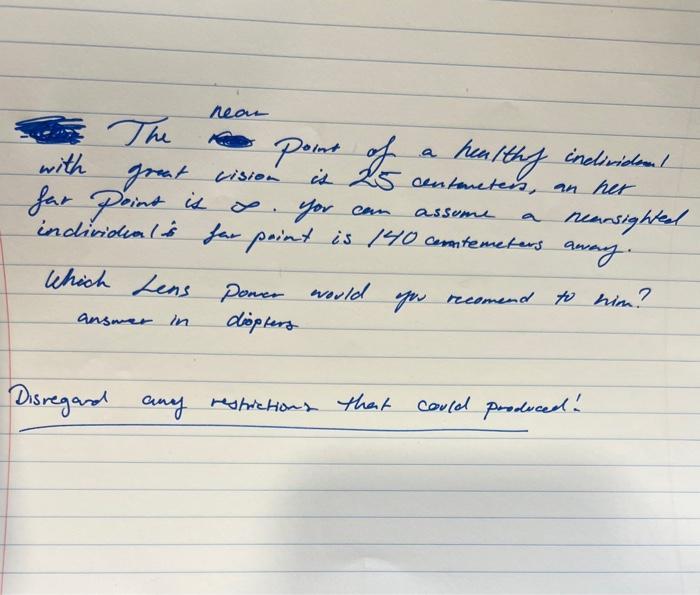 near
The Point of a healthy individual
with great vision is 25 centemeters, an her
far Point is ∞. you can assume a nearsighted
individual's far point is 140 cemtemeters away.
Which Lens power would you recomend to him?
answer in diopters
Disregard any restrictions that could produced!